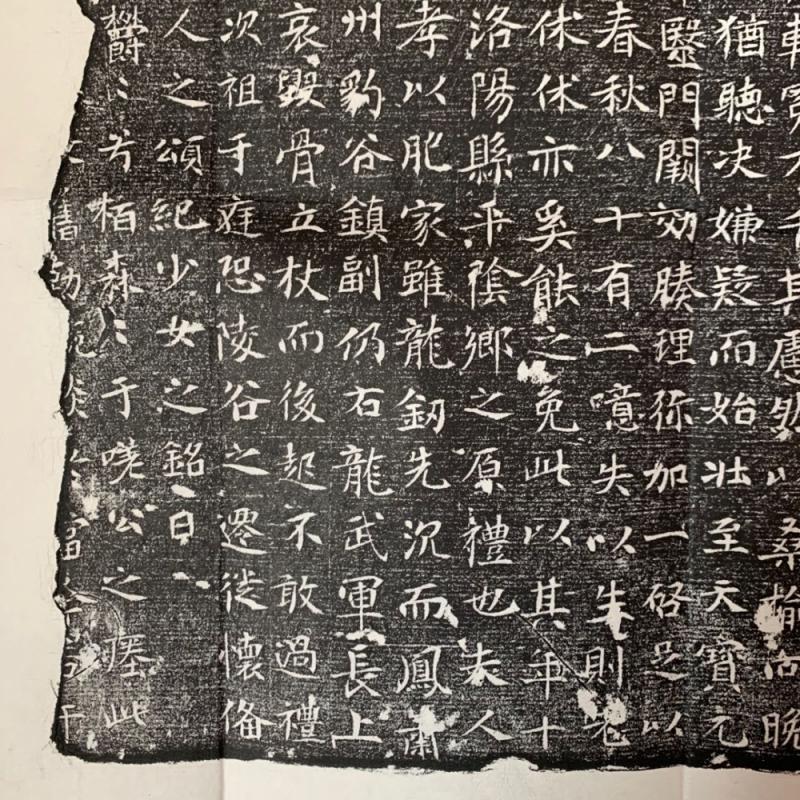 其慮然以桑榆向晚
猶聽决嫌疑而始壮至天寶元
醫門闕効腠理弥加一啓足以
春秋八十有二噫失以生則老
休休亦奚能之免此以其年十
洛陽縣平陰鄉之原禮也夫人
孝以肥家雖龍釼先沉而鳳簫
州豹谷鎮副仍右龍武軍長上
哀毀骨立杖而後起不敢過禮
次祖于庭恐陵谷之遷徙懷俻
人之頌紀少女之銘曰
欝〻芳栢森〻于嗟公之此